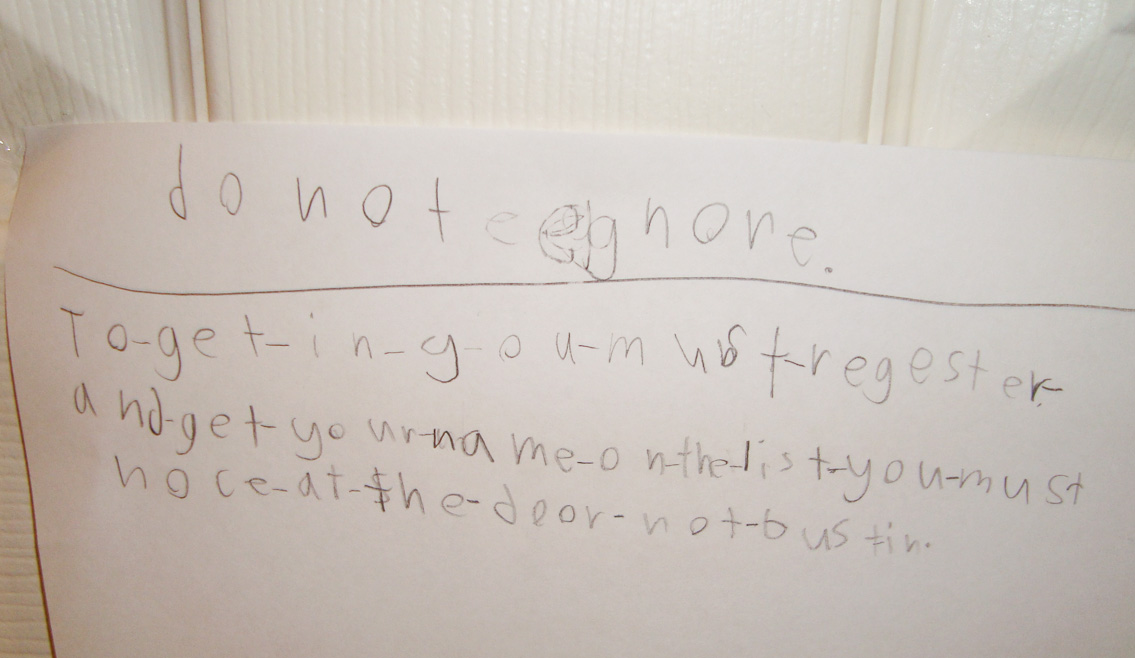 do not e egnore.
To-get-in-you-must-regester-
and-get-your-name-on-the-list-you-must
noce-at-the-door-not-bustin.